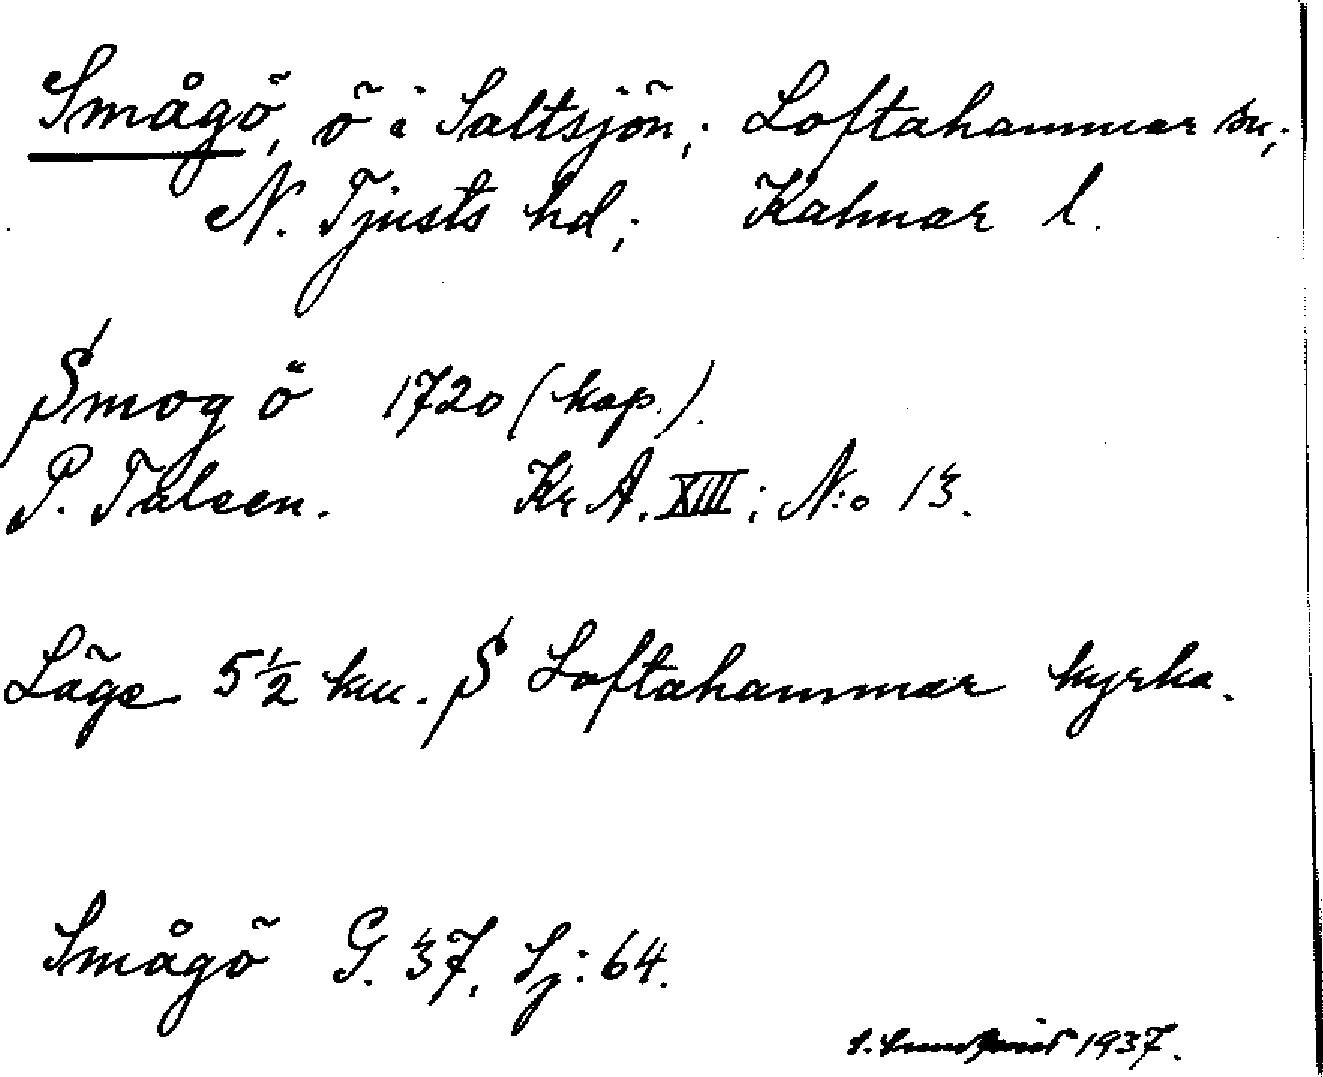 Smågö, ö i Saltsjön; Loftahammar sn;
N. Tjusts hd; Kalmar l.
Smog ö 1720 (kop.).
P. Tålsen. Kr A. XIII; N:o 13.
Läge 5 1/2 km. S Loftahammar kyrka.
Smågö G. 37, Sj: 64.
1937.